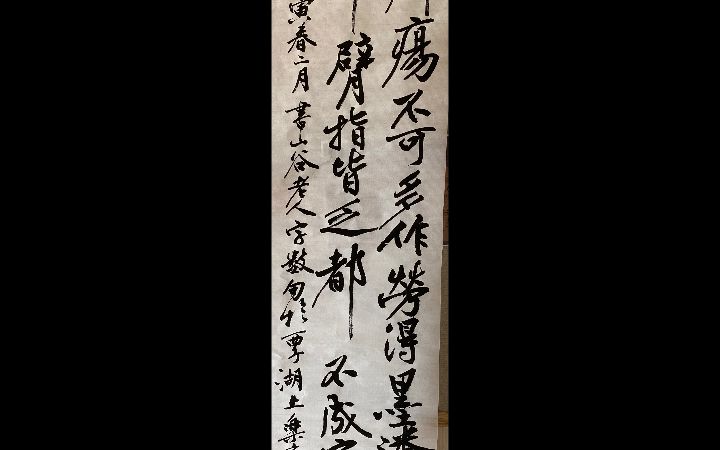 瘍不可多作勞得墨瀋
臂指皆乏都不成字
寅春二月書山谷老人字數句於覃湖土樂